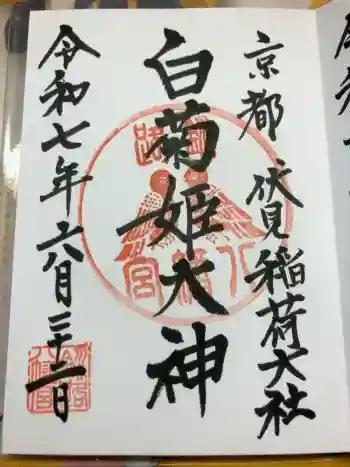 京都 伏見稲荷大社
白菊姫大神
令和七年六月二十二日
八幡宮